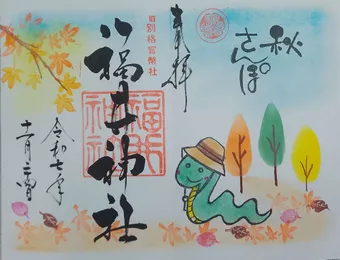 秋
さんぽ
奉拝
旧別格官幣社
福井神社
福井
神社
令和七年